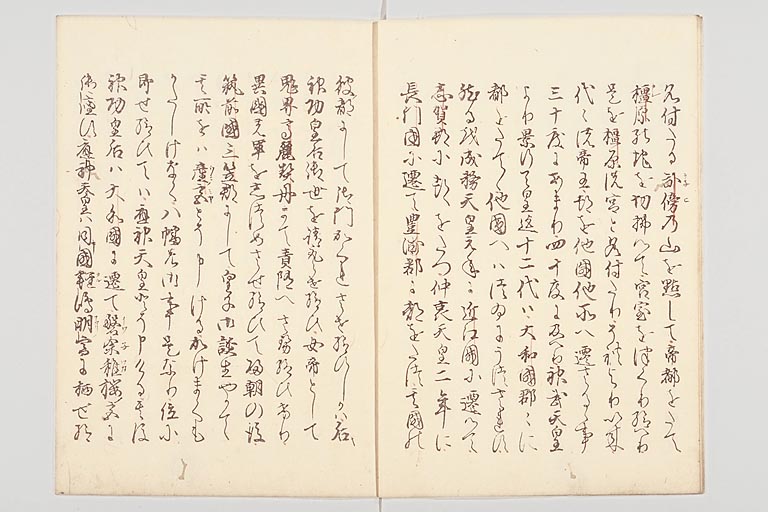 名付たる畝傍乃山を點して帝都をたて
橿原の地を切掃ひて宮室を作くり給へり
是を橿原の宮と名付たりそれより以来
代々の帝王都を他國他所へ遷さるゝ事
三十度にあまり四十度に及へり神武天皇
より景行天皇迄十二代ハ大和國郡々に
都をたてゝ他國へハうつされす
然るを成務天皇元年に近江國に遷りて
志賀郡に都をたつ仲哀天皇二年に
長門國に遷て豊浦郡に都をたつ其國の
彼都にして御門かくれさせ給ひしかハ后
神功皇后御世を請とらせ給ひ女帝として
鬼界高麗契丹まて責随へさせ給ひけり
異國の軍をしつめさせ給ひて歸朝の後
筑前國三笠郡にして皇子御誕生やかて
其所をハ産宮とそ申しけるかけまくも
かたしけなく八幡の御事是なり位に
即せ給ひてハ應神天皇とそ申ける其後
神功皇后ハ大和國に遷て磐余稚桜宮に
應神天皇ハ同國軽嶋明宮に栖せ給